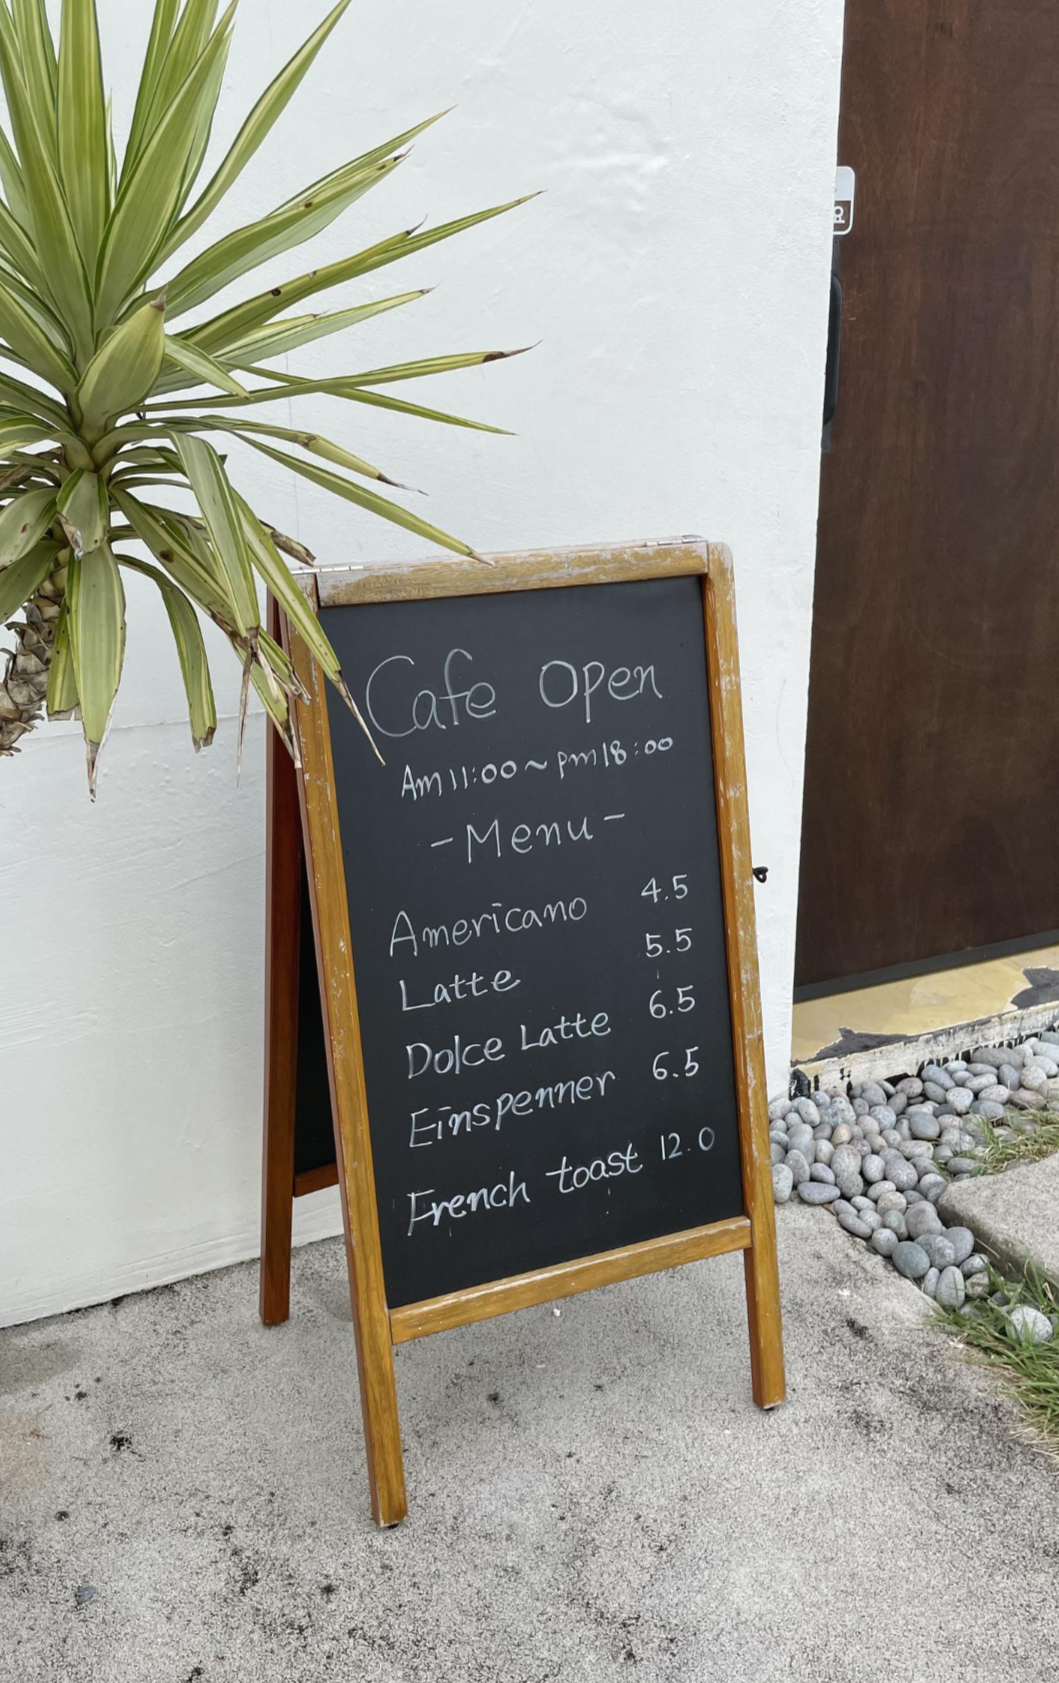 Cafe Open
Am 11:00 ~ pm 18:00
- Menu -
Americano 4.5
Latte 5.5
Dolce Latte 6.5
Einspenner 6.5
French toast 12.0